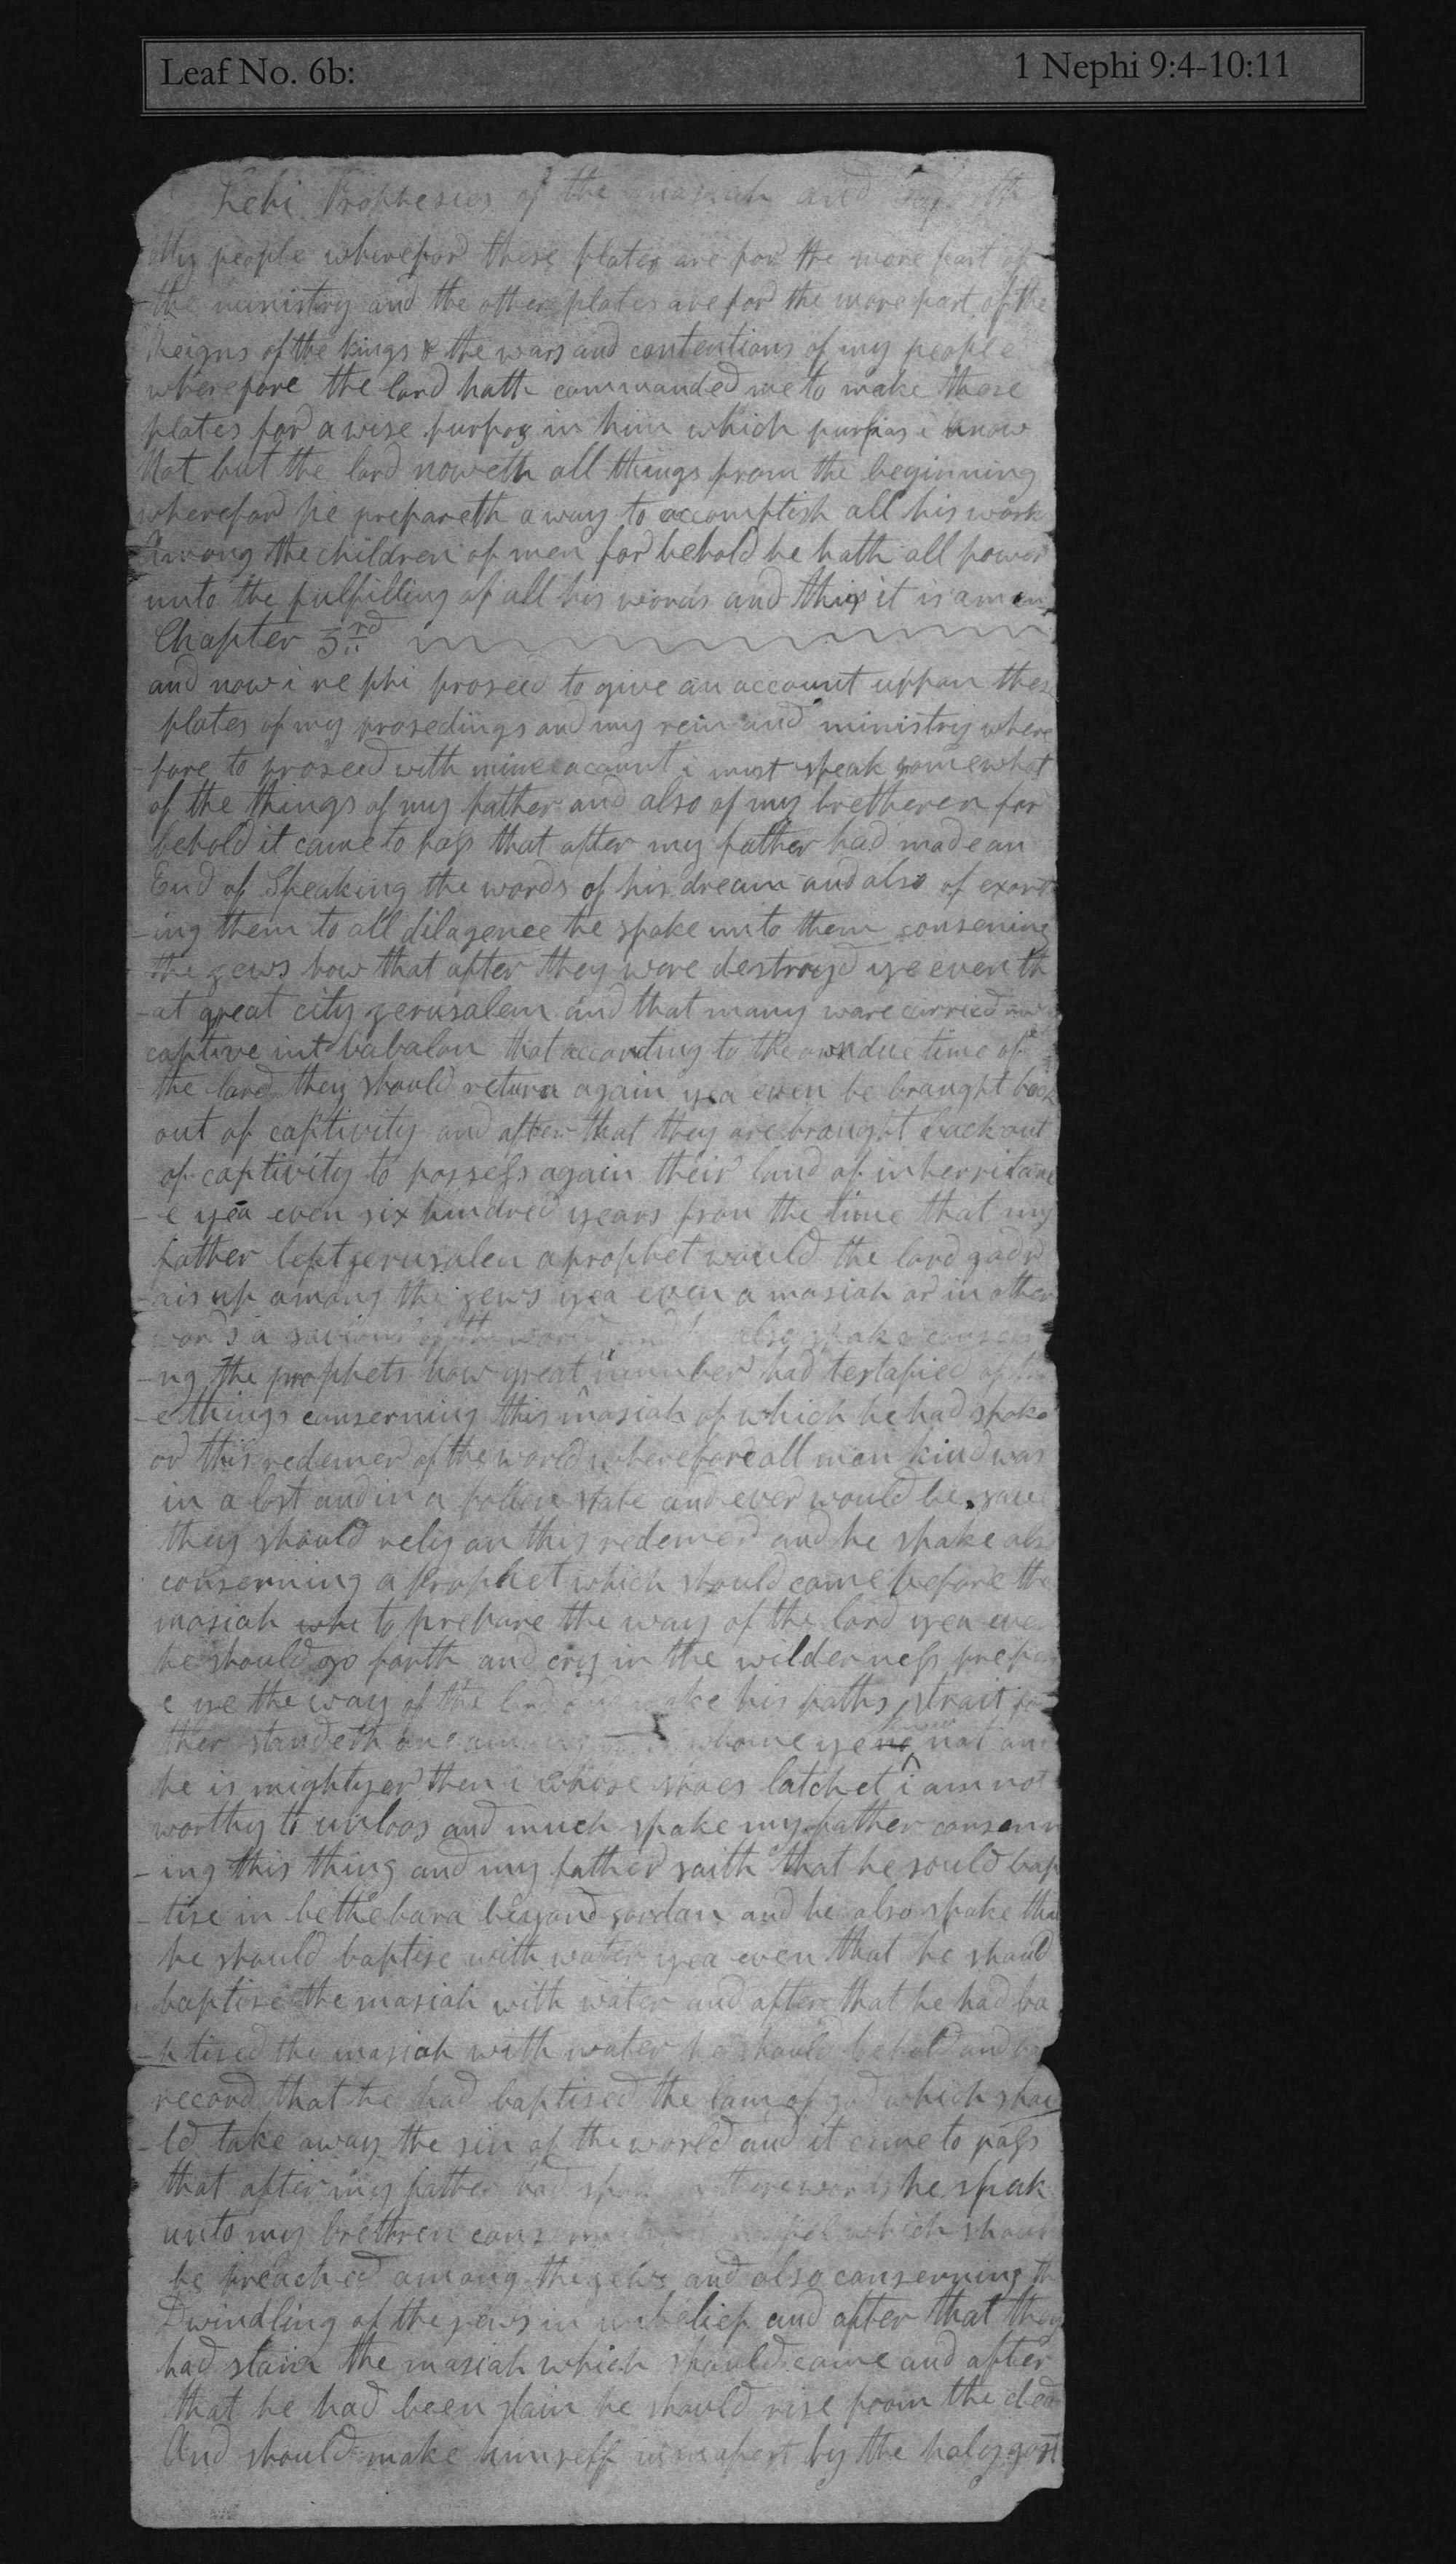 Leaf No. 6b: 1 Nephi 9:4-10:11
Lehi Prophesies of the and
My people wherefor these plates are for the more part of
the ministry and the other plates are for the more part of the
Reigns of the kings & the wars and contentions of my people
wherefore the lord hath commanded me to make these
plates for a wise purpos in him which purpos i know
Not but the lord noweth all things from the beginning
wherefor he prepareth a way to accomplish all his work
Among the children of men for behold he hath all power
unto the fulfilling of all his words and thus it is amen
Chapter 3rd
and now i nephi proseed to give an account uppon thes
plates of my prosedings and my rein and ministry where
fore to proseed with mine account i must speak somewhat
of the things of my father and also of my bretheren for
behold it came to pass that after my father had made an
End of Speaking the words of his dream and also of exort
-ing them to all dilagence he spake unto them conserning
the jews how that after they were destroyd ye even th
-at great city jerusalem and that many ware carried
captive int babalon that according to the own due time of
the lord they should return again yea even be braught back
out of captivity and after that they are braught back out
of captivity to possess again their land of inherritanc
-e yea even six hundred years from the time that my
father left jerusalem a prophet would the lord god r
-ais up among the jews yea even a masiah or in other
words a saviour of the world and also spake conserni
-ng the prophets how great a number had testafied of
-e things conserning this masiah of which he had spoke
or this redemer of the world wherefore all man kind was
in a lost and in a fallen state and ever would be save
they should rely on this redemer and he spake als
conserning a prophet which should come before the
masiah whi to prepare the way of the lord yea even
he should go forth and cry in the wilderness prepar
e ye the way of the lord and make his paths strait for
ther standeth one among whome ye no know not and
he is mightyer then i whose shoes latchet i am not
worthy to unloos and much spake my father consern
-ing this thing and my father saith that he sould bap
-tise in bethebara beyond jordan and he also spake that
he should baptise with water yea even that he should
baptise the masiah with water and after that he had ba
-ptised the masiah with water he should behold and
record that he had baptised the lam of god which shou
-ld take away the sin of the world and it came to pass
that after my father had these words he speak
unto my brethren which should
be preached among the jews and also conserning th
Dwindling of the jews in unbelief and after that they
had slain the masiah which should come and after
that he had been slain he should rise from the dead
And should make himself by the holy gost